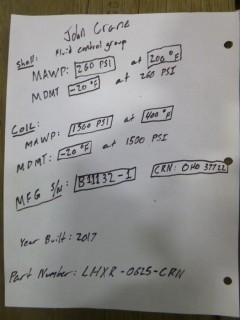 John Crane
Shell: Fluid control group
MAWP: 260 PSI at 200 °F
MDMT -20 °F at 260 PSI
Coil:
MAWP: 1500 PSI at 400 °F
MDMT: -20 °F at 1500 PSI
MFG S/N: B11132-1 CRN: OH0 37722
Year Built: 2017
Part Number: LHXR-0625-CRN